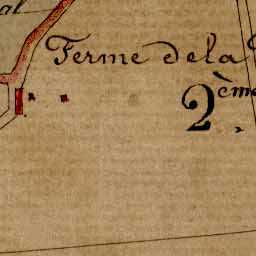 al
Ferme de la
2ème